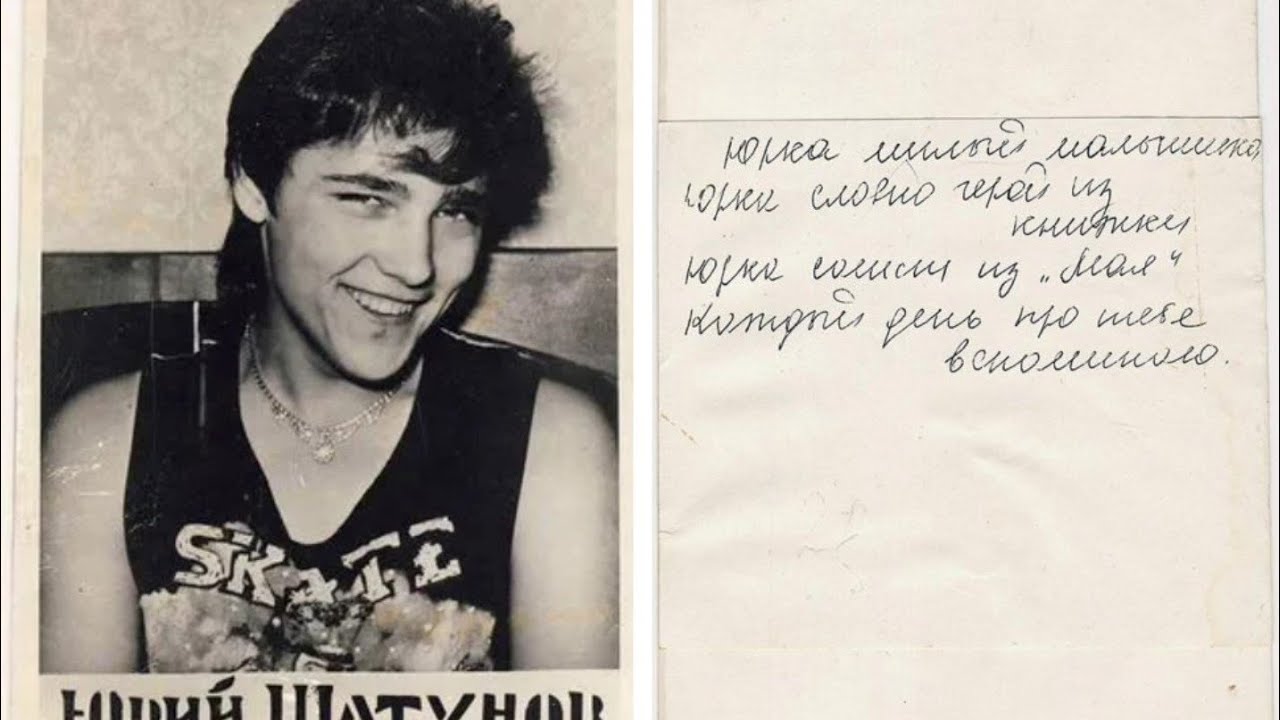 SKATE
ЮРИЙ ШАТУНОВ
Юрка милый малышка
Юрка словно герой из
книжки
Юрка солист из „Мая“
Каждый день про тебе
вспоминаю.